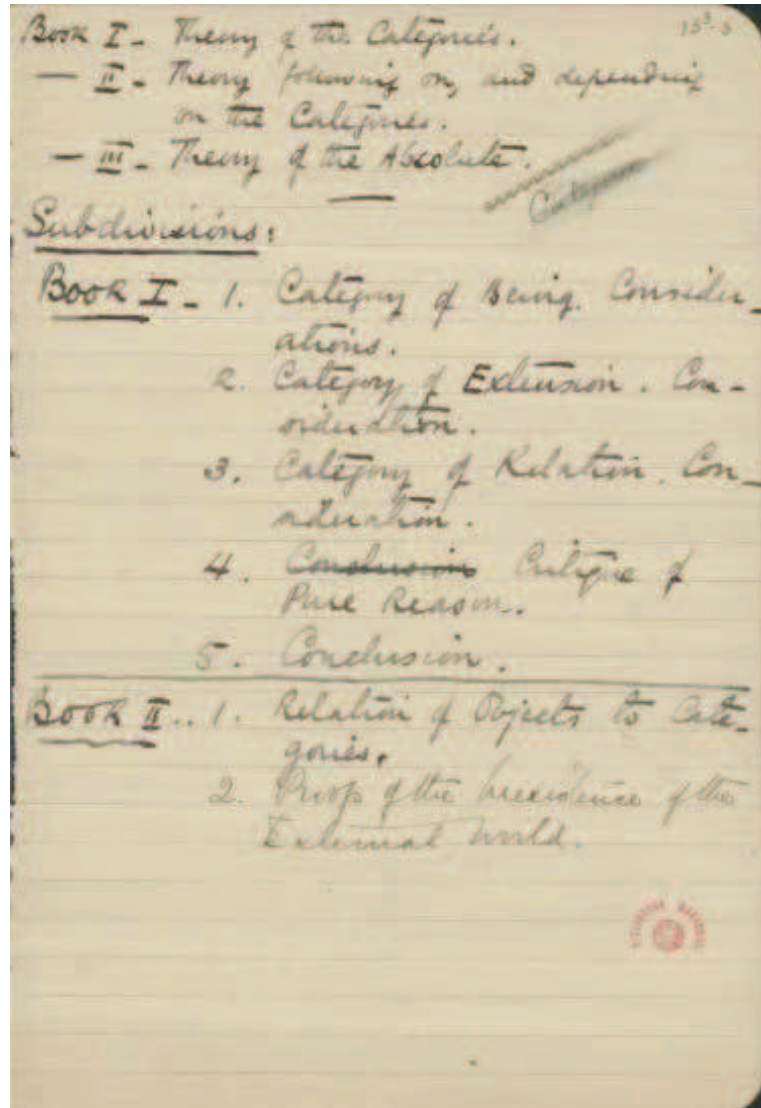 Book I - Theory of the Categories.
— II - Theory following on, and depending
on the Categories.
— III - Theory of the Absolute.
Subdivisions:
Book I - 1. Category of Being. Consider-
ations.
2. Category of Extension. Con-
sideration.
3. Category of Relation. Con-
sideration.
4. Conclusion Critique of
Pure Reason.
5. Conclusion.
Book II.. 1. Relation of Objects to Cate-
gories.
2. Proof of the Inexistence of the
External World.